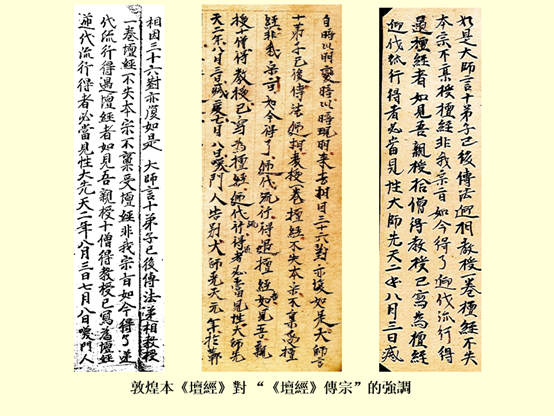 相因三十六對亦復如是 大師言十弟子已後傳法遞相教授
一卷壇經不失本宗不稟受壇經非我宗旨如今得了遞
代流行得遇壇經者如見吾親授十僧得教授已寫為壇經
遞代流行得者必當見性大先天二年八月三日七月八日喚門人
以明變以現明來去相因三十六對亦復如是大師言
十弟子已後傳法迎相教授一卷壇經不失本宗不稟壇
經非我宗旨如今得了迎代流行得遇壇經如見吾親
授十僧得教授已寫為壇經迎代流行得者必當見性大師先
天二年八月三日滅度七月八日喚門人告別大師先天元年於
如是大師言十弟子已後傳法迎相教授一卷壇經不失
本宗不稟授壇經非我宗旨如今得了迎代流行得
遇壇經者如見吾親授拾僧得教授已寫為壇經
迎代流行得者必當見性大師先天二年八月三日滅
敦煌本《壇經》對 “《壇經》傳宗”的強調